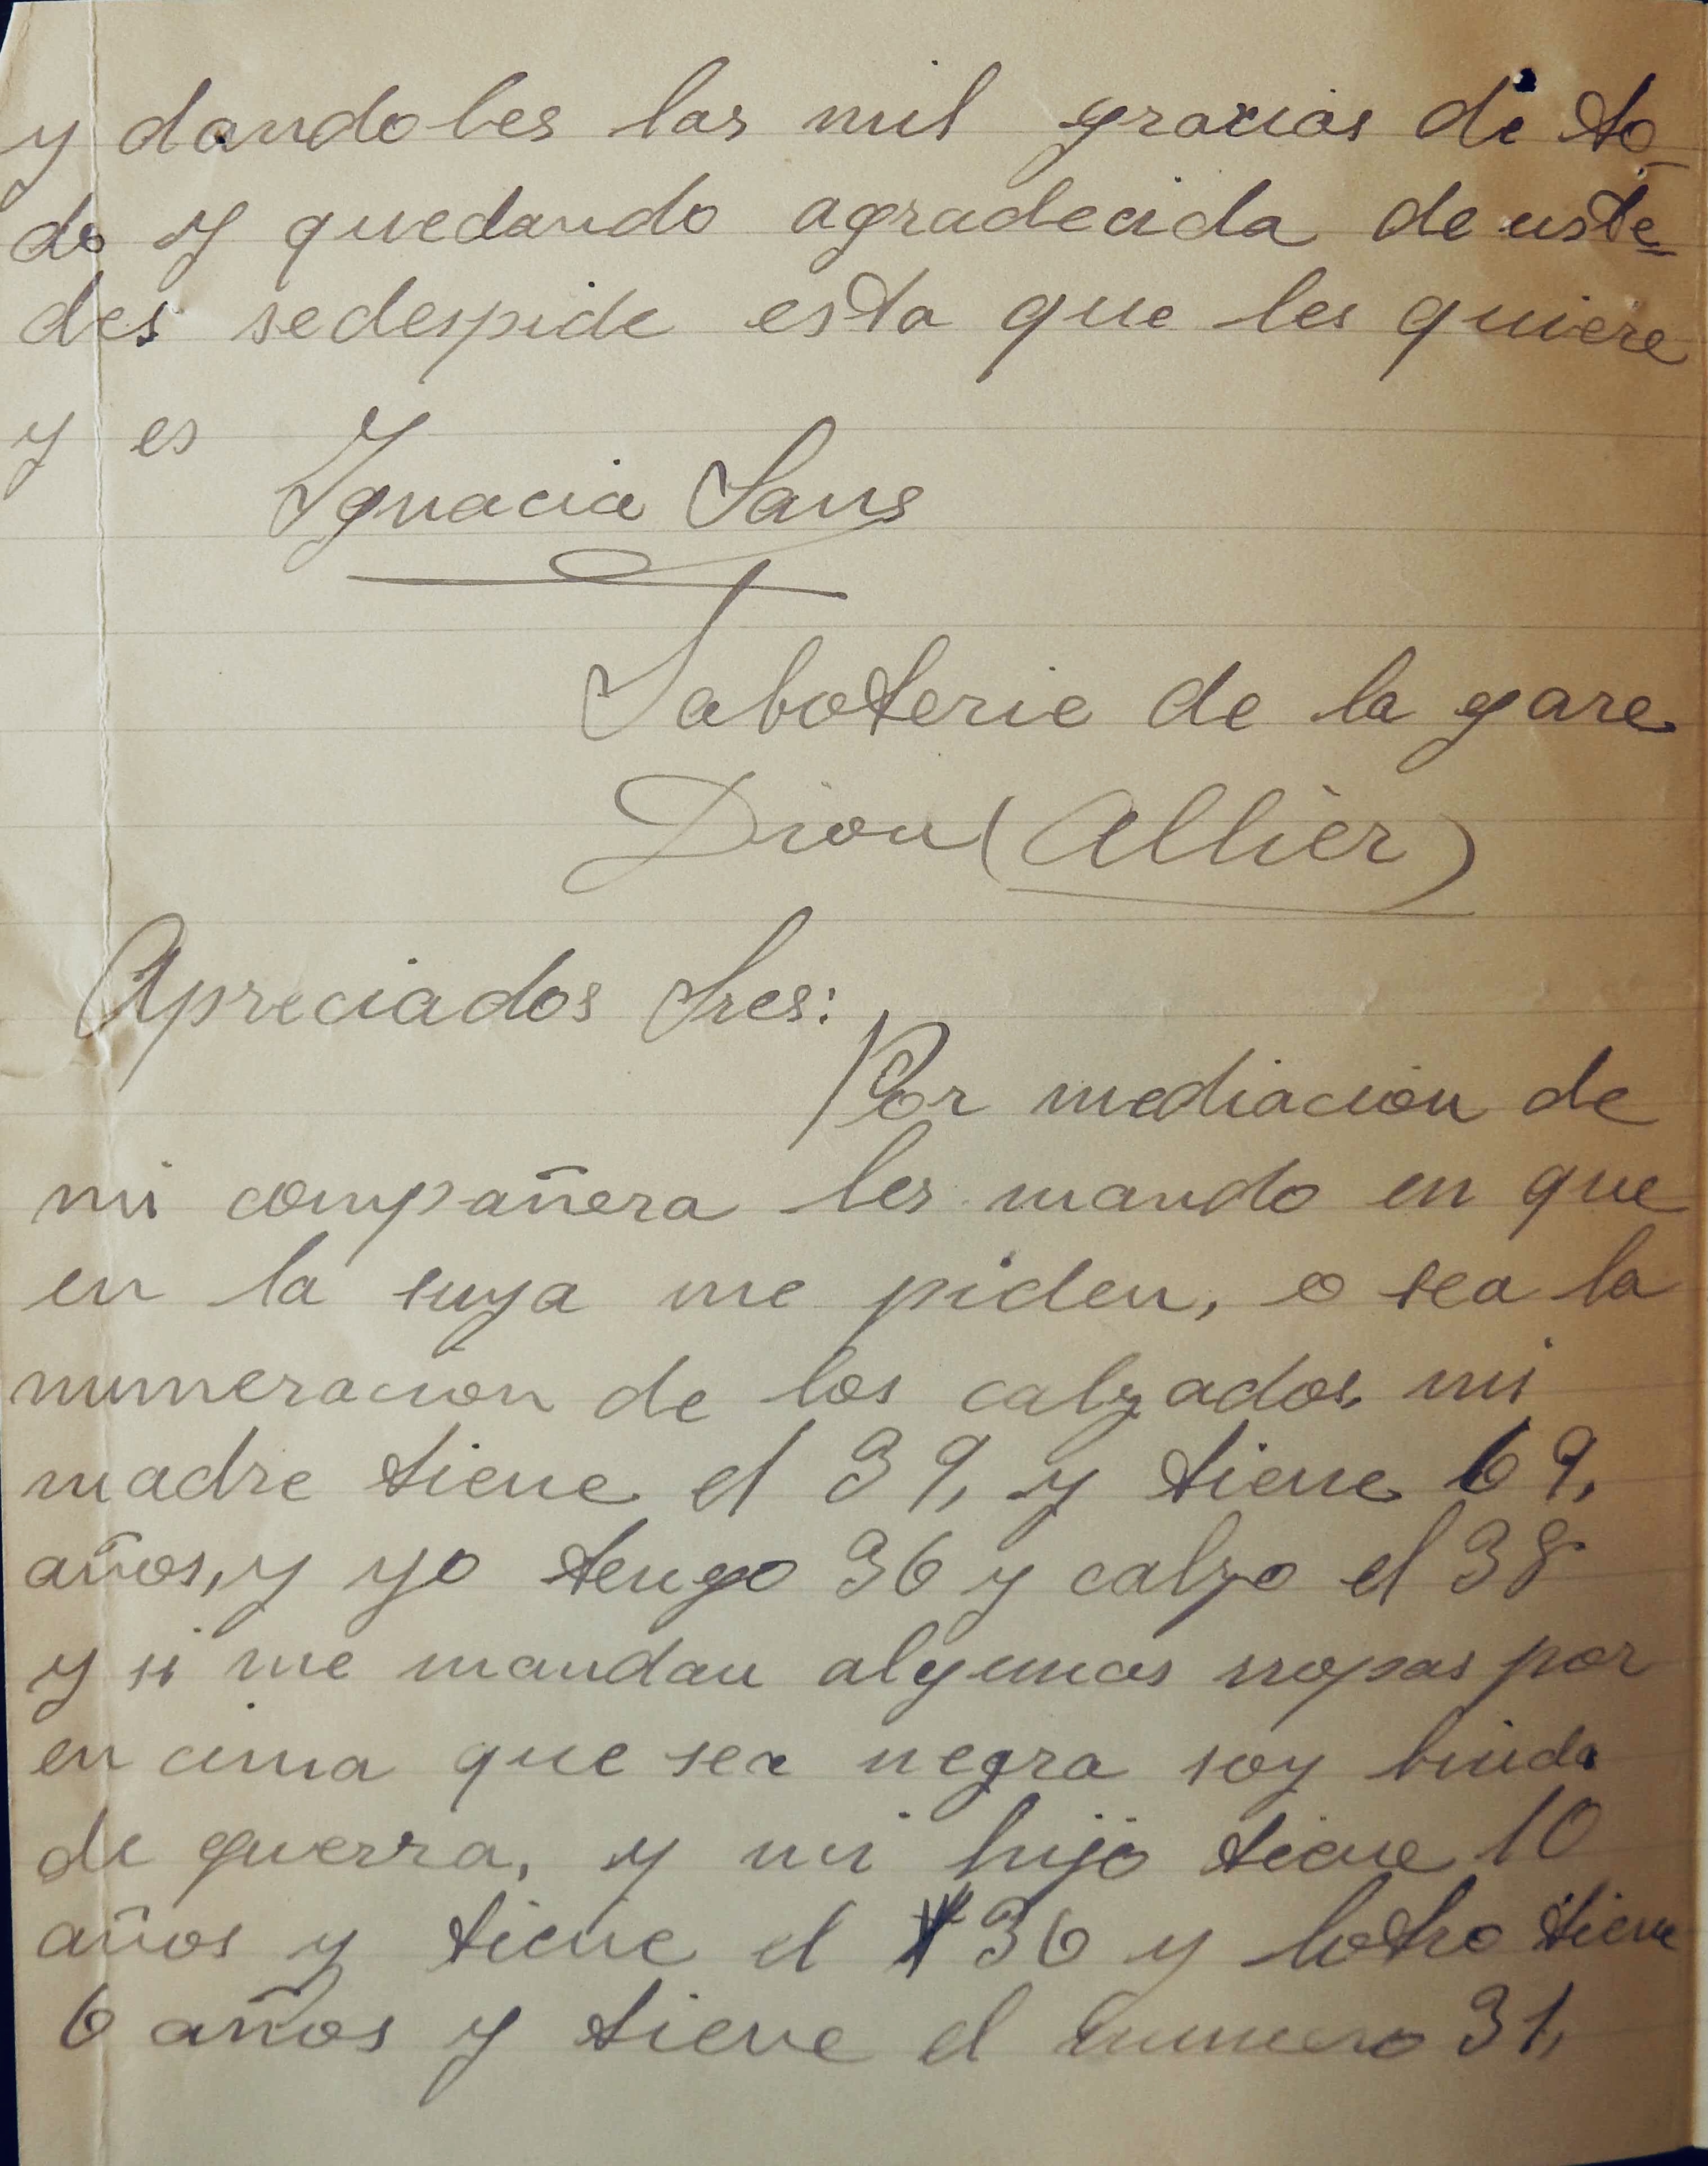 y dandoles las mil gracias de to-
do y quedando agradecida de uste-
des sedespide esta que les quiere
y es
Ygnacia Sans
Saboterie de la gare
Diou (Allier)
Apreciados Sres:
Por mediacion de
mi compañera les mando en que
en la suya me piden, o sea la
numeracion de los calzados, mi
madre tiene el 39, y tiene 69,
años, y yo tengo 36 y calzo el 38
y si me mandan algunas rropas por
en cima que sea negra soy biuda
de guerra, y mi hijo tiene 10
años y tiene el 36 y lotro tiene
6 años y tiene el numero 31,